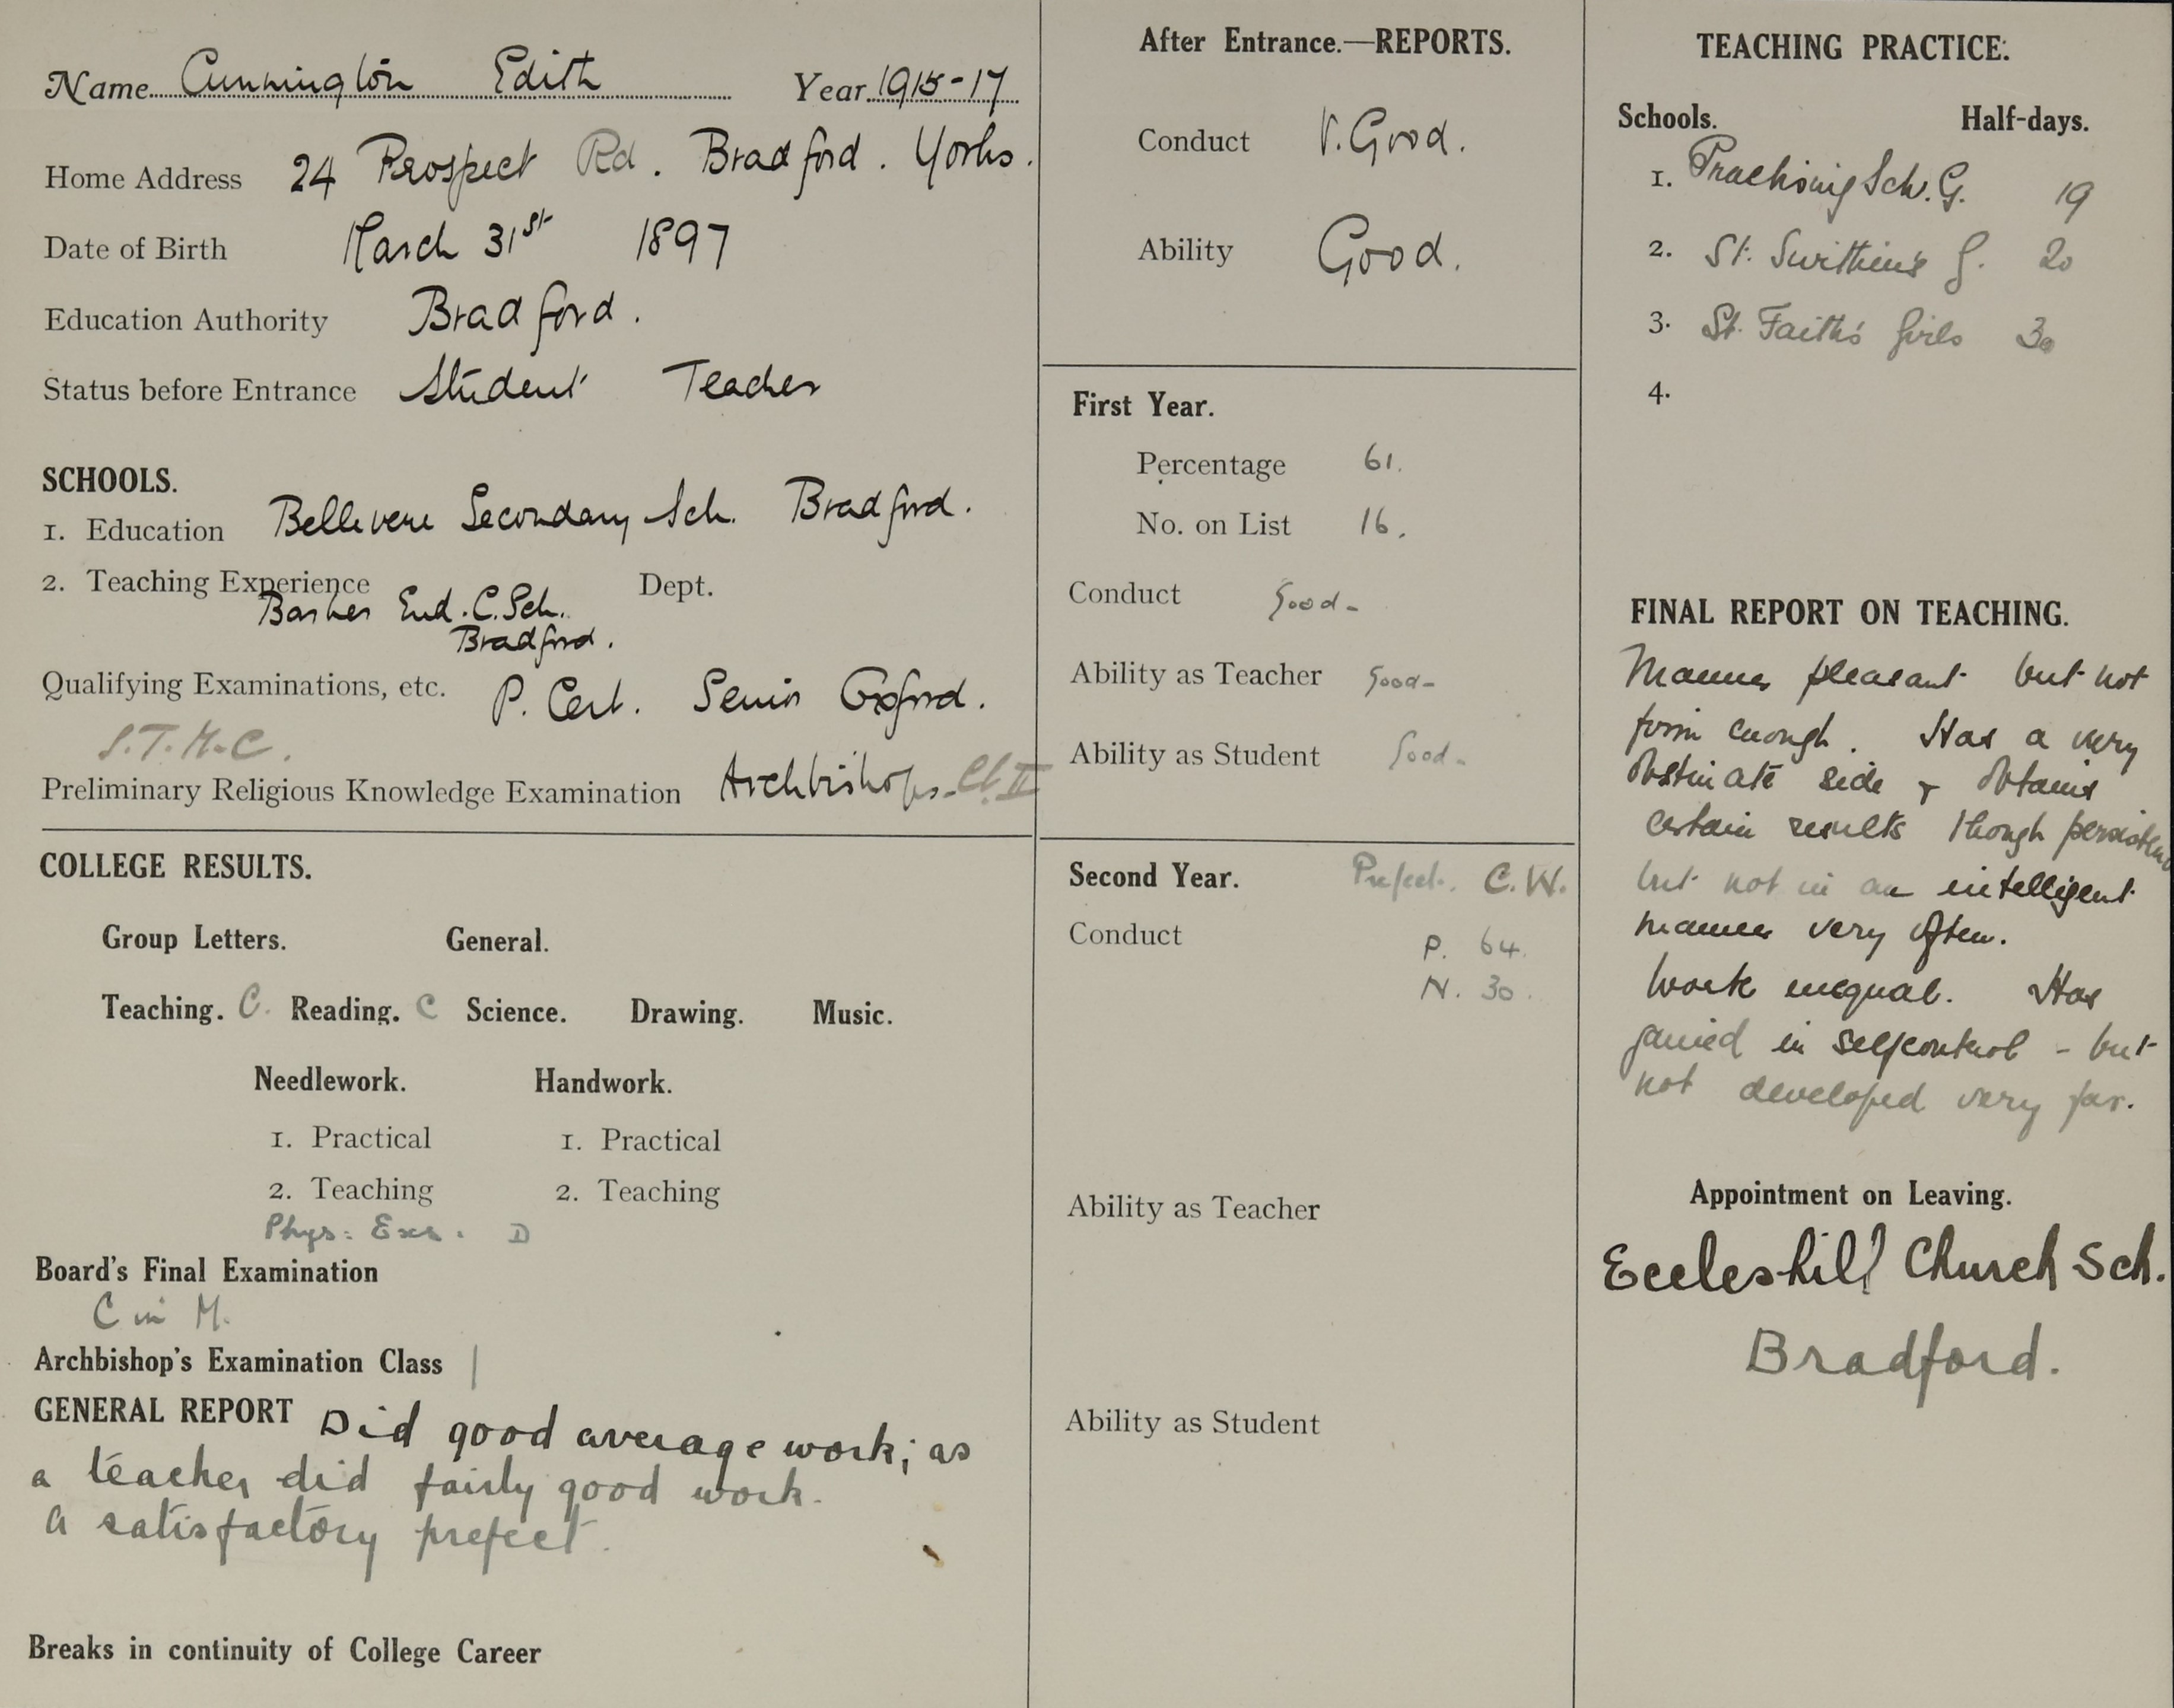 Name Cunnington Edith Year 1915-17
Home Address 24 Prospect Rd. Bradford. Yorks.
Date of Birth March 31st 1897
Education Authority Bradford.
Status before Entrance Student Teacher
SCHOOLS.
1. Education Bellevue Secondary Sch. Bradford.
2. Teaching Experience Dept.
End. C. Sch.
Bradford.
Qualifying Examinations, etc. P. Cert. Senior Oxford.
Preliminary Religious Knowledge Examination Archbishops. Cl. II
COLLEGE RESULTS.
Group Letters. General.
Teaching. C. Reading. C Science. Drawing. Music.
Needlework. Handwork.
1. Practical 1. Practical
2. Teaching 2. Teaching
Phys: Exs. D
Board's Final Examination
C in M.
Archbishop's Examination Class 1
GENERAL REPORT Did good average work; as
a teacher did fairly good work.
A satisfactory prefect.
Breaks in continuity of College Career
After Entrance.—REPORTS.
Conduct V. Good.
Ability Good.
First Year.
Percentage 61.
No. on List 16.
Conduct Good-
Ability as Teacher Good-
Ability as Student Good-
Second Year. Prefect. C.W.
Conduct
P. 64.
N. 30.
Ability as Teacher
Ability as Student
TEACHING PRACTICE.
Schools. Half-days.
1. Practising Sch. G. 19
2. St. Swithin's G. 20
3. St. Faith's Girls 30
4.
FINAL REPORT ON TEACHING.
Manner pleasant but not
firm enough. Has a very
obstinate side & obtains
certain results though persistence
but not in an intelligent
manner very often.
Work unequal. Has
gained in selfcontrol - but
not developed very far.
Appointment on Leaving.
Eccleshill Church Sch.
Bradford.